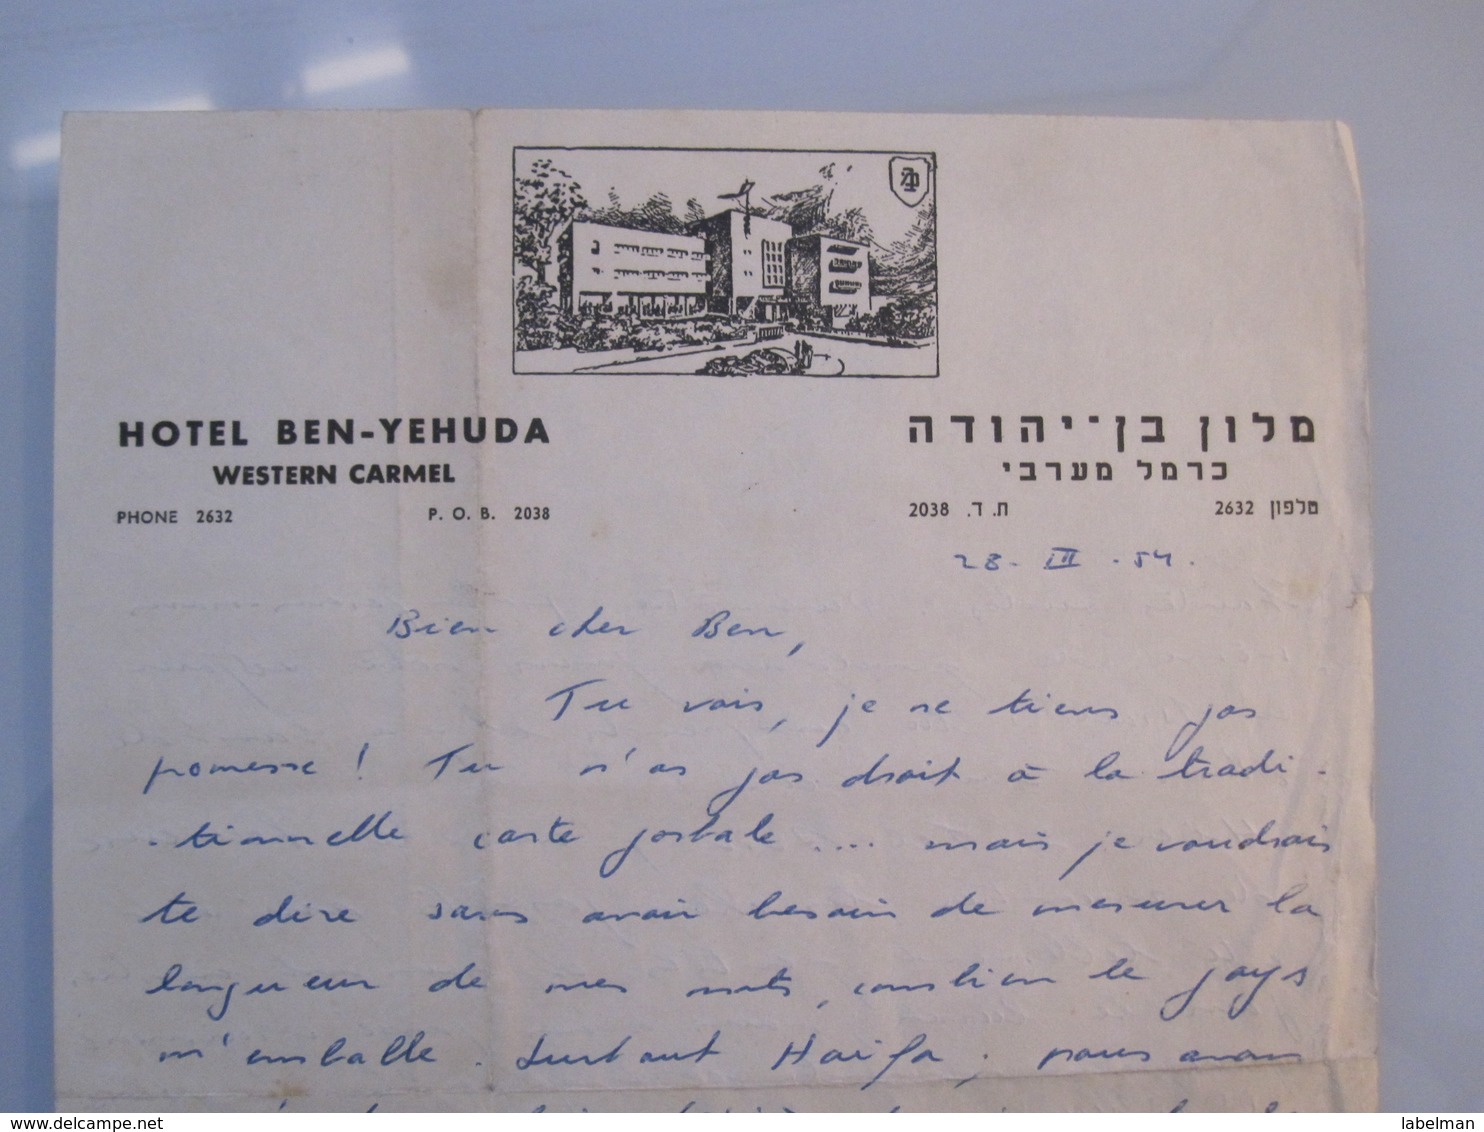 HOTEL BEN-YEHUDA
WESTERN CARMEL
PHONE 2632 P. O. B. 2038
מלון בן־יהודה
כרמל מערבי
טלפון 2632 ת. ד. 2038
28 - III - 54.
Bien cher Ben,
Tu vois, je ne tiens pas
promesse ! Tu n'as pas droit à la tradi-
-tionnelle carte postale .... mais je voudrais
te dire sans avoir besoin de mesurer la
longueur de mes mots, combien le pays
m'emballe. Surtout Haïfa, nous avons
labelman
delcampe.net